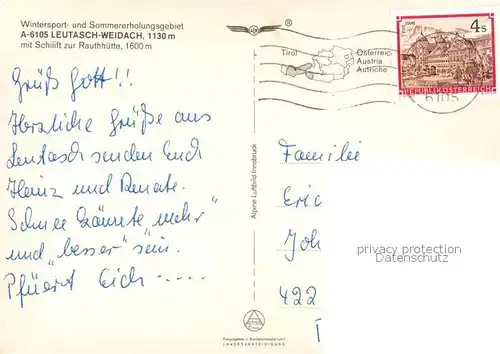 Wintersport- und Sommererholungsgebiet
A-6105 LEUTASCH-WEIDACH, 1130 m
mit Schilift zur Rauthhütte, 1600 m
®
Tirol
Österreich
Austria
Autriche
4s
REPUBLIK ÖSTERREICH
6105
Grüß Gott!!
Herzliche Grüße aus
Leutasch senden Euch
Heinz und Renate.
Schnee könnte „mehr"
und „besser" sein.
Pfüert Eich -....
Alpine Luftbild Innsbruck
Familie
Eric
Joh
422
privacy protection
oldthing.com
Freigegeben v. Bundesministerium f.
LANDESVERTEIDIGUNG